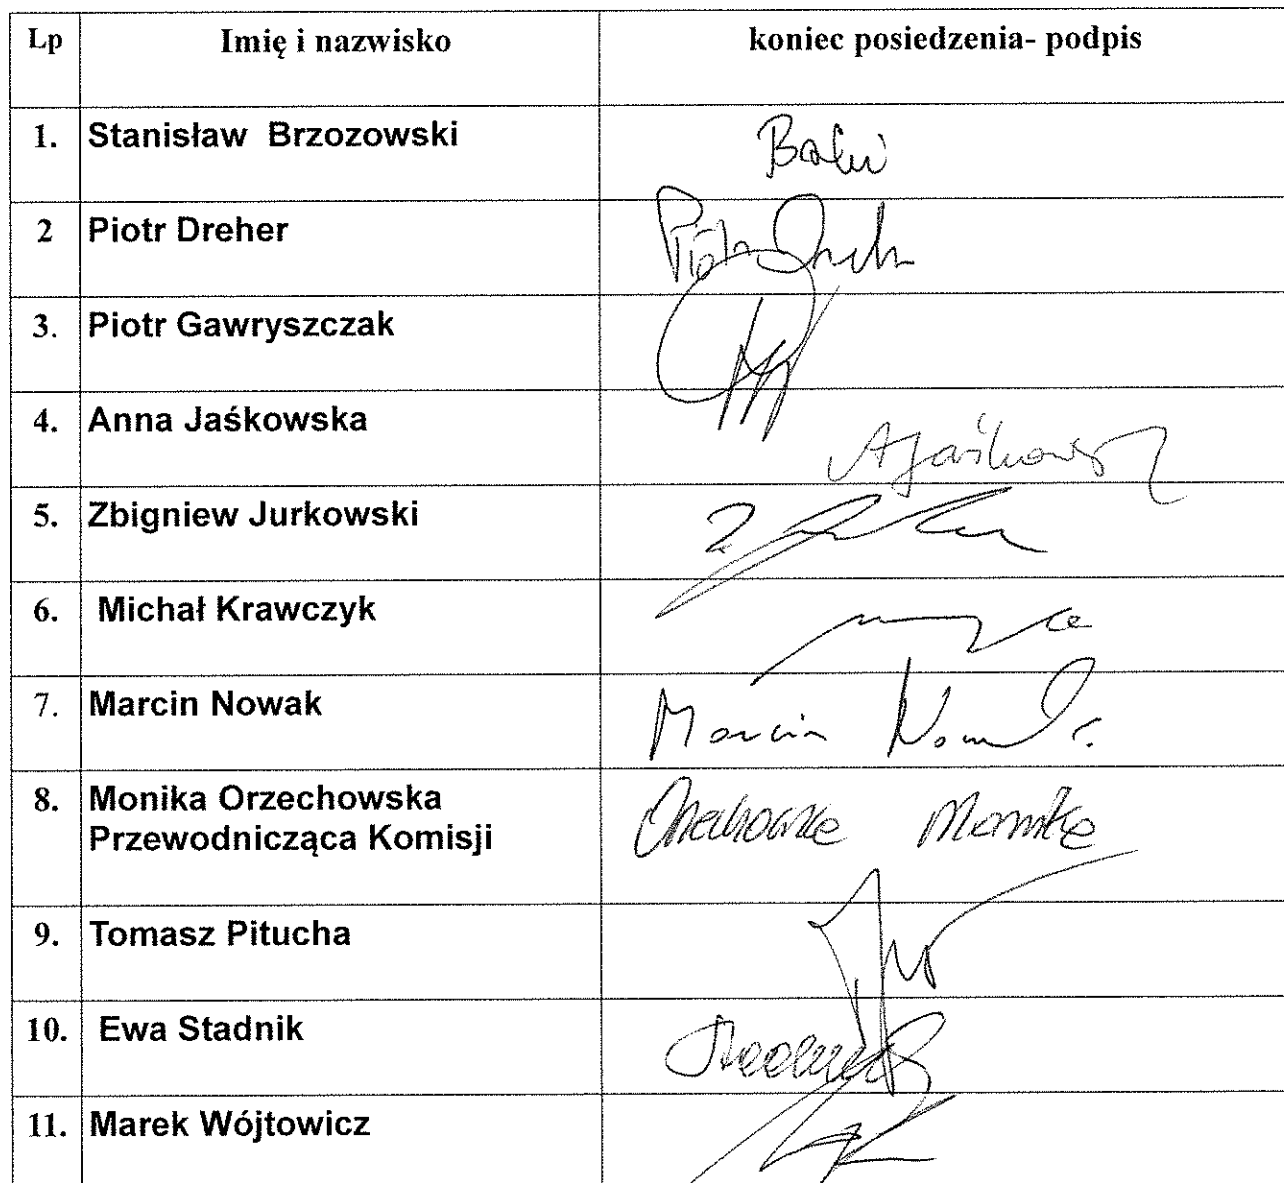 Lp Imię i nazwisko koniec posiedzenia- podpis
1. Stanisław Brzozowski
2 Piotr Dreher Piotr Dreher
3. Piotr Gawryszczak
4. Anna Jaśkowska AJaśkowska
5. Zbigniew Jurkowski
6. Michał Krawczyk
7. Marcin Nowak Marcin Nowak
8. Monika Orzechowska Orzechowska Monika
Przewodnicząca Komisji
9. Tomasz Pitucha
10. Ewa Stadnik Stadnik
11. Marek Wójtowicz